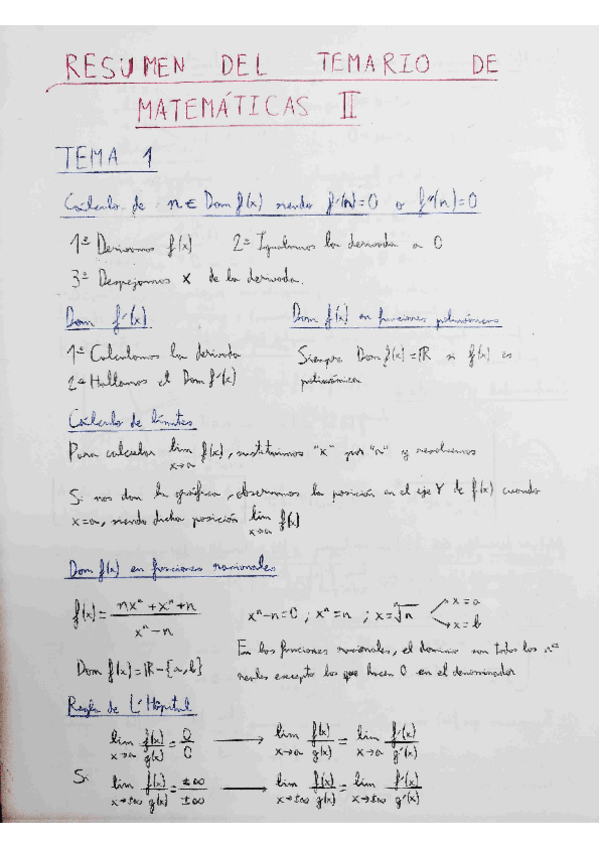 RESUMEN DEL TEMARIO DE
MATEMÁTICAS II
TEMA 1
Cálculo de n ∈ Dom f(x) siendo f'(n)=0 o f''(n)=0
1º Derivamos f(x) 2º Igualamos la derivada a 0
3º Despejamos x de la derivada.
Dom f'(x)
1º Calculamos la derivada
2º Hallamos el Dom f'(x)
Dom f(x) en funciones polinómicas
Siempre Dom f(x) = ℝ si f(x) es
polinómica
Cálculo de límites
Para calcular lim x→a f(x), sustituimos "x" por "a" y resolvemos
Si nos dan la gráfica, observamos la posición en el eje Y de f(x) cuando
x=a, siendo dicha posición lim x→a f(x)
Dom f(x) en funciones racionales
f(x) = (nxⁿ + xⁿ + n) / (xⁿ − n)
xⁿ−n=0 ; xⁿ=n ; x=ⁿ√n → x=a → x=b
Dom f(x) = ℝ − {a,b}
En las funciones racionales, el dominio son todos los nºs
reales excepto los que hacen 0 en el denominador
Regla de L'Hôpital
lim x→a f(x)/g(x) = 0/0 → lim x→a f(x)/g(x) = lim x→a f'(x)/g'(x)
Si
lim x→±∞ f(x)/g(x) = ±∞/±∞ → lim x→±∞ f(x)/g(x) = lim x→±∞ f'(x)/g'(x)